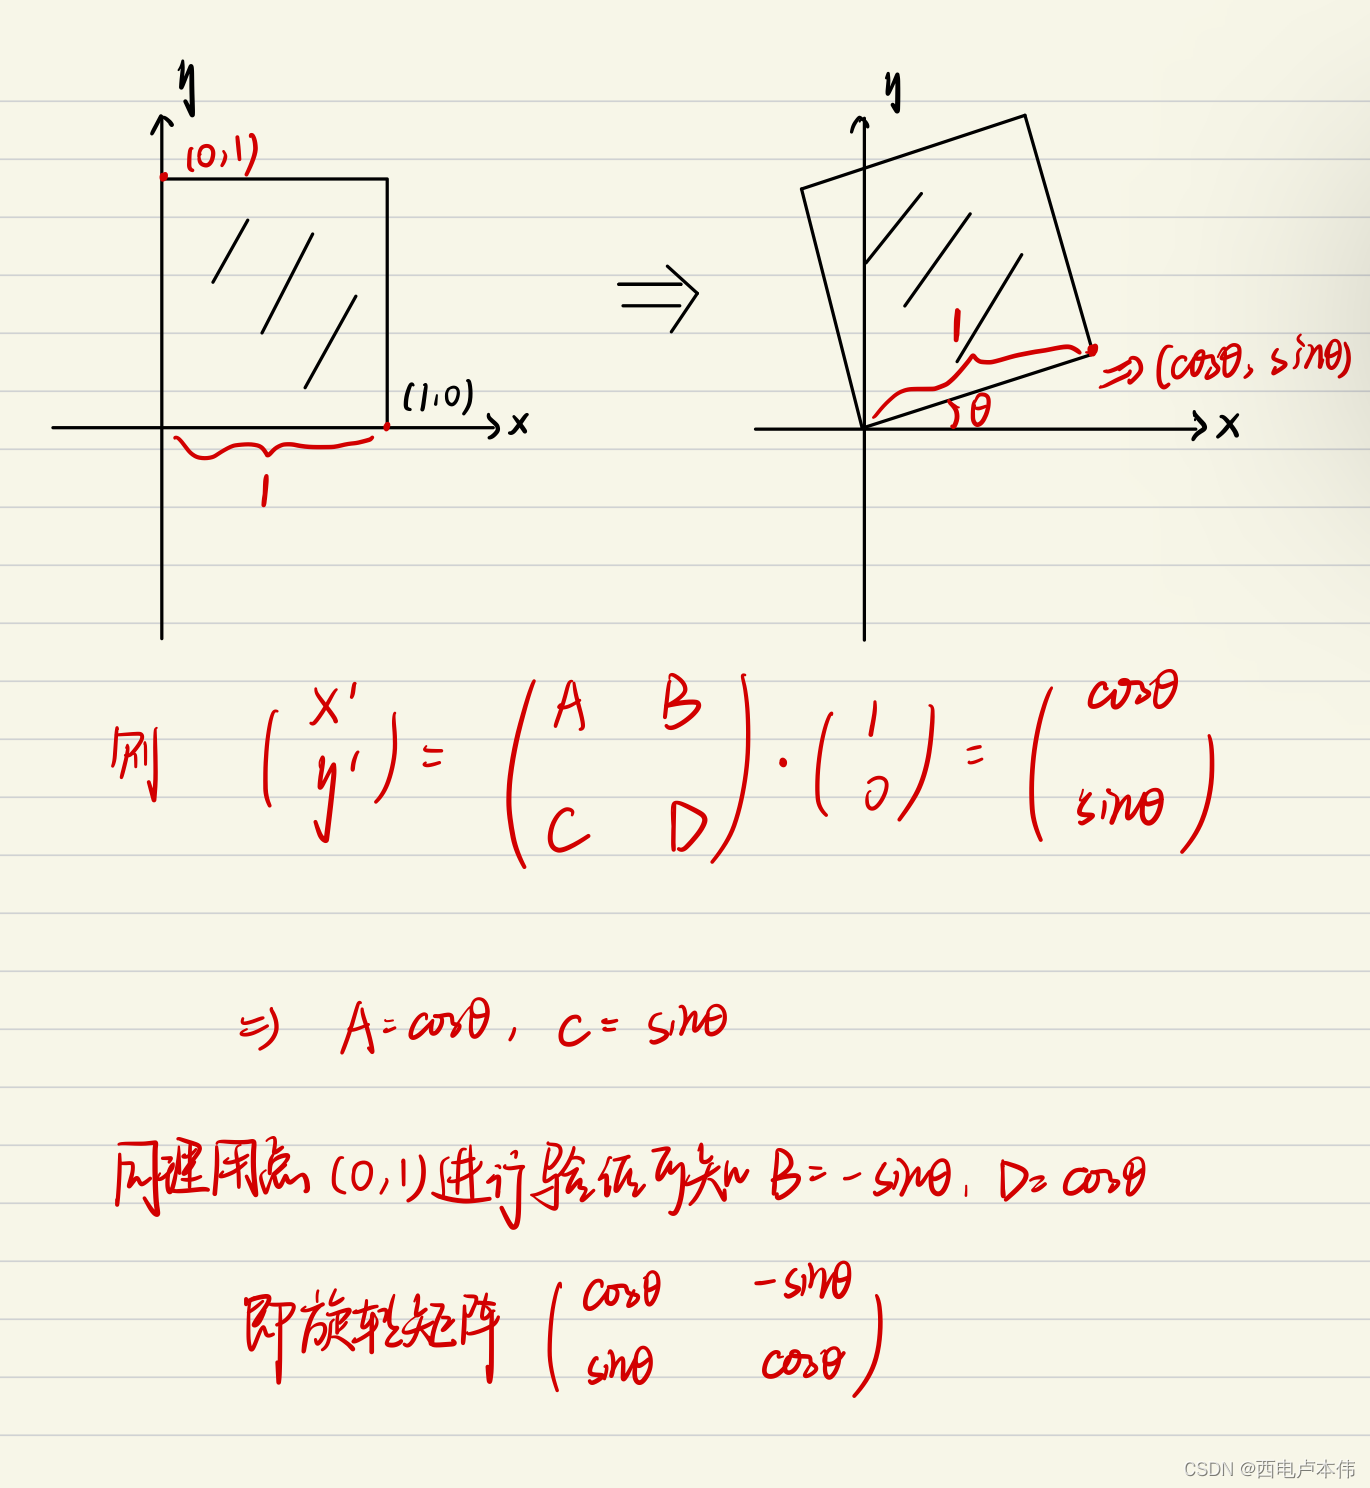 y
(0,1)
(1,0)
x
1
y
1
⇒(cosθ, sinθ)
θ
x
则 (x' y') = (A B C D) · (1 0) = (cosθ sinθ)
⇒ A=cosθ, C=sinθ
同理用点(0,1)进行 可知 B=-sinθ, D=cosθ
即旋转矩阵 (cosθ -sinθ sinθ cosθ)
CSDN @西电卢本伟